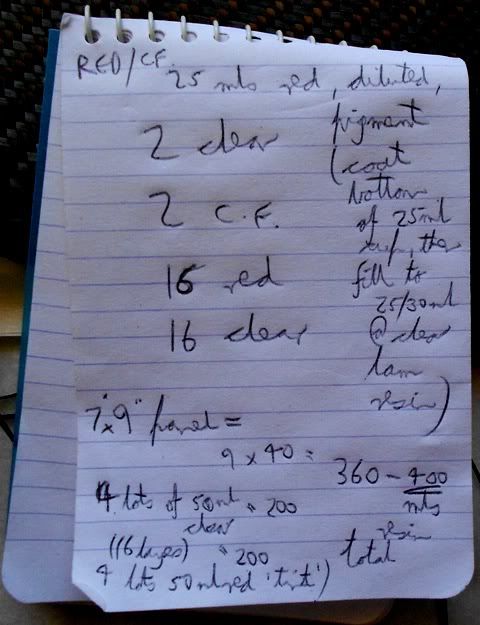 RED/CF.
25 mls red, diluted,
pigment
(coat
bottom
of 25ml
cup, then
fill to
25/30ml
@ clear
lam
resin)
2 clear
2 C.F.
16 red
16 clear
7"x9" panel =
9 x 40 =
360 - 400
mls
resin
total
4 lots of 50ml = 200
clear
(16 layers) = 200
4 lots 50ml red 'tint')